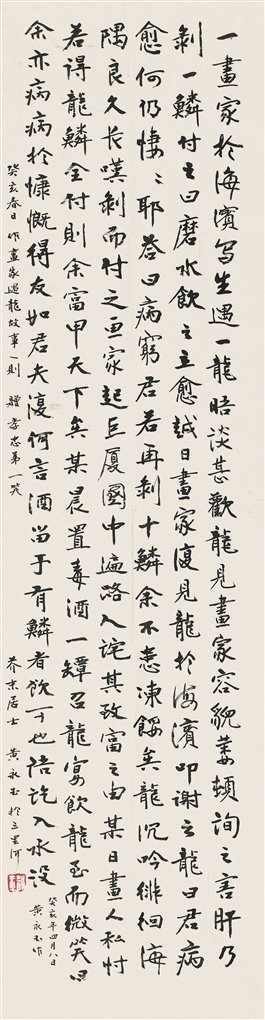 一畫家於海濱寫生遇一龍晤談甚歡龍見畫家容貌萎頓詢之害肝乃
剝一鱗付之曰磨水飲之立愈越日畫家復見龍於海濱叩謝之龍曰君病
愈何仍悽悽耶答曰病窮君若再剝十鱗余不患凍餒矣龍沉吟徘徊海
隅良久長嘆剝而付之畫家起巨廈園中遍路人詫其致富之由某日畫人私忖
若得龍鱗全付則余富甲天下矣某晨置毒酒一罈召龍宴飲龍至而微笑曰
余亦病病於慷慨得友如君夫復何言酒留于有鱗者飲可也語訖入水没
癸亥春日作畫家遇龍故事一則 贈孝忠弟一笑 荼末居士 黄永玉於三里河
癸亥年四月八日
黄永玉作